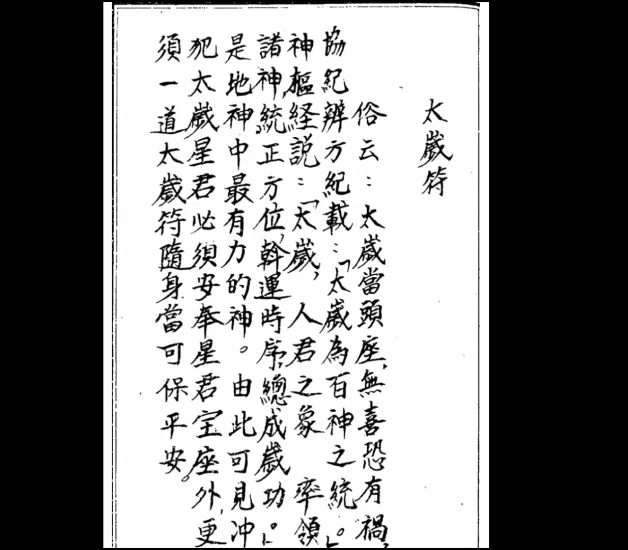 太歲符
俗云：太歲當頭座，無喜恐有禍，
協紀辨方紀載：「太歲為百神之統。」
神樞経説：「太歲，人君之象　率領
諸神，統正方位，斡運時序，總成歲功。」
是地神中最有力的神。由此可見冲
犯太歲星君必須安奉星君宝座外，更
須一道太歲符隨身當可保平安。